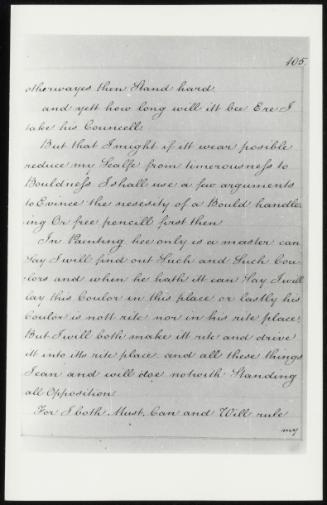 105
otherwayes then Stand hard
and yett how long will itt bee Ere I
take his Councell
But that I might if itt wear posible
reduce my Sealfe from timerousness to
Bouldness I shall use a few arguments
to Evince the nesesity of a Bould handle
ing Or free pencill first then
In Painting hee only is a master can
say I will find out Such and Such Cou
lors and when he hath itt can Say I will
lay this Coulor in this place or lastly his
Coulor is nott rite nor in his rite place
But I will both make itt rite and drive
itt into itts rite place and all these things
I can and will doe notwith Standing
all Opposition
For I both Must, Can and Will rule
my